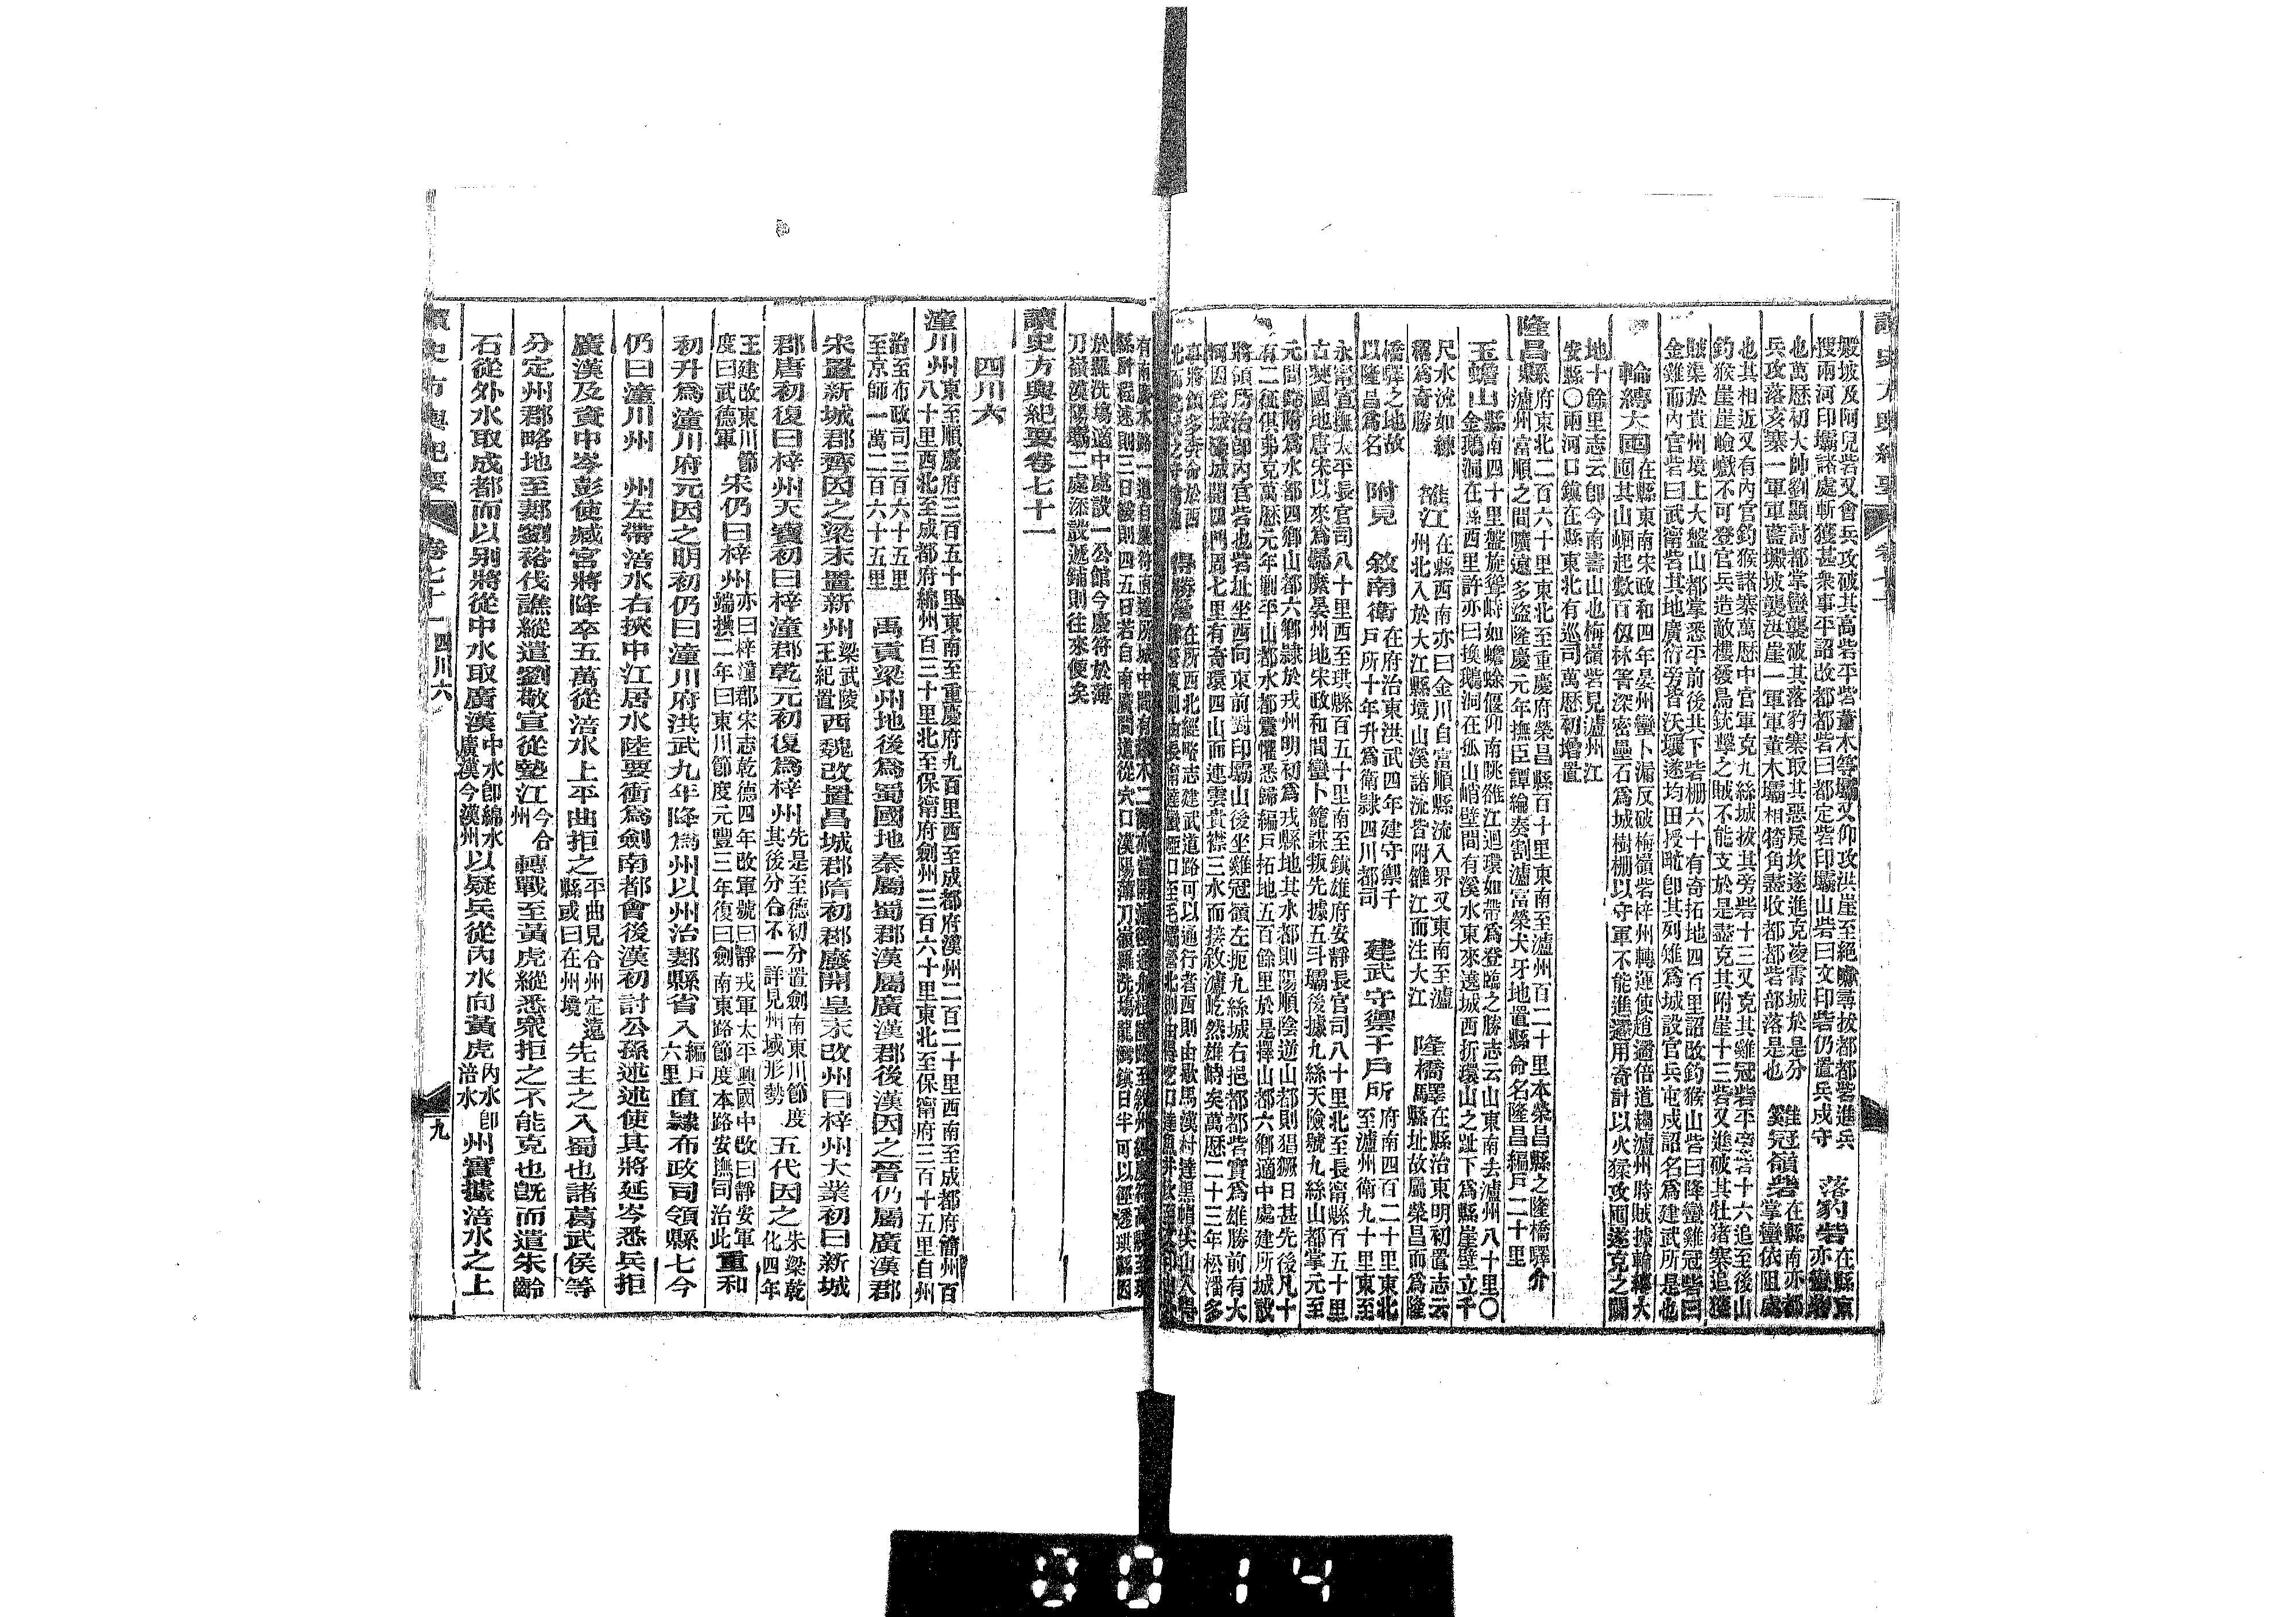 毀坡及阿兒砦又會兵攻破其高砦平砦董木等壩又仰攻洪崖至絕巘尋拔都都砦進兵
搜兩河印壩諸處斬獲甚衆事平詔改都都砦曰都定砦印壩山砦曰文印砦仍置兵戍守
落豹砦
也萬厯初大帥劉顯討都掌蠻襲破其落豹寨取其惡屍坎遂進克凌霄城於是分
兵攻落亥寨一軍軍藍壩坡襲洪崖一軍軍董木壩相犄角盡收都都砦部落是也
雞冠嶺砦在縣南亦都
掌蠻依阻處
也其相近又有內官釣猴諸寨萬厯中官軍克九絲城拔其旁砦十三又克其雞冠砦平旁砦十六追至後山
釣猴崖崖嶮巇不可登官兵造敵樓發鳥銃擊之賊不能支於是盡克其附崖十三砦又進破其牡猪寨追獲
賊渠於貴州境上大盤山都掌悉平前後共下砦柵六十有奇拓地四百里詔改釣猴山砦曰降蠻雞冠砦曰
金雞而內官砦曰武甯砦其地廣衍旁皆沃壤遂均田授甿卽其列雉爲城設官兵屯戍詔名爲建武所是也
輪縛大囤在縣東南宋政和四年晏州蠻卜漏反破梅嶺砦梓州轉運使趙遹倍道趨瀘州時賊據輪縛大
囤其山崛起數百仭林箐深密壘石爲城樹柵以守軍不能進遹用奇計以火猱攻囤遂克之闢
地十餘里志云卽今南壽山也梅嶺砦見瀘州江
安縣〇兩河口鎮在縣東北有巡司萬厯初增置
隆昌縣府東北二百六十里東北至重慶府榮昌縣百十里東南至瀘州百二十里本榮昌縣之隆橋驛介
瀘州富順之間曠遠多盜隆慶元年撫臣譚綸奏割瀘富榮犬牙地置縣命名隆昌編戸二十里
玉蟾山縣南四十里盤旋聳峙如蟾蜍偃仰南眺雒江迴環如帶爲登臨之勝志云山東南去瀘州八十里〇
金鵝洞在縣西里許亦曰換鵝洞在孤山峭壁間有溪水東來遶城西折環山之趾下爲縣崖壁立千
尺水流如練
稱爲奇勝
雒江在縣西南亦曰金川自富順縣流入界又東南至瀘
州北入於大江縣境山溪諸流皆附雒江而注大江
隆橋驛在縣治東明初置志云
馬縣址故屬榮昌而爲隆
橋驛之地故
以隆昌爲名
附見
敘南衛在府治東洪武四年建守禦千
戸所十年升爲衛隷四川都司
建武守禦千戸所府南四百二十里東北
至瀘州衛九十里東至
永甯宣撫太平長官司八十里西至珙縣百五十里南至鎮雄府安靜長官司八十里北至長甯縣百五十里
古僰國地唐宋以來爲羈縻晏州地宋政和間蠻卜籠謀叛先據五斗壩後據九絲天險號九絲山都掌元至
元間歸附爲水都四鄉山都六鄉隷於戎州明初爲戎縣地其水都則陽順陰逆山都則猖獗日甚先後凡十
有二征俱弗克萬厯元年剿平山都水都震懼悉歸編戸拓地五百餘里於是擇山都六鄉適中處建所城設
將領所治卽內官砦也砦址坐西向東前對印壩山後坐雞冠嶺左扼九絲城右挹都都砦實爲雄勝前有大
河因爲城磚城開四門周七里有奇環四山而連雲貴襟三水而接敘瀘屹然雄峙矣萬厯二十三年松潘多
得勝營
於羅洗塢適中處設一公館今慶符於薄
刀嶺漢陽壩二處添設遞鋪則往來便矣
讀史方輿紀要卷七十一
四川六
潼川州東至順慶府三百五十里東南至重慶府九百里西至成都府漢州二百二十里西南至成都府簡州百
八十里西北至成都府綿州百二十里北至保甯府劍州三百六十里東北至保甯府三百十五里自州
治至布政司三百六十五里
至京師一萬二百六十五里
禹貢梁州地後爲蜀國地秦屬蜀郡漢屬廣漢郡後漢因之晉仍屬廣漢郡
宋置新城郡齊因之梁末置新州梁武陵
王紀置西魏改置昌城郡隋初郡廢開皇末改州曰梓州大業初曰新城
郡唐初復曰梓州天寶初曰梓潼郡乾元初復爲梓州先是至德初分置劍南東川節度
其後分合不一詳見州域形勢五代因之朱梁乾
化四年
王建改東川節
度曰武德軍宋仍曰梓州亦曰梓潼郡宋志乾德四年改軍號曰靜戎軍太平興國中改曰靜安軍
端拱二年曰東川節度元豐三年復曰劍南東路節度本路安撫司治此重和
初升爲潼川府元因之明初仍曰潼川府洪武九年降爲州以州治郪縣省入編戸
六里直隷布政司領縣七今
仍曰潼川州　州左帶涪水右挾中江居水陸要衝爲劍南都會後漢初討公孫述述使其將延岑悉兵拒
廣漢及資中岑彭使臧宮將降卒五萬從涪水上平曲拒之平曲見合州定遠
縣或曰在州境先主之入蜀也諸葛武侯等
分定州郡略地至郪劉裕伐譙縱遣劉敬宣從墊江今合
州轉戰至黃虎縱悉衆拒之不能克也旣而遣朱齡
石從外水取成都而以別將從中水取廣漢中水卽綿水
廣漢今漢州以疑兵從內水向黃虎內水卽
涪水州實據涪水之上
讀史方輿紀要
卷七十一　四川六
九
0014